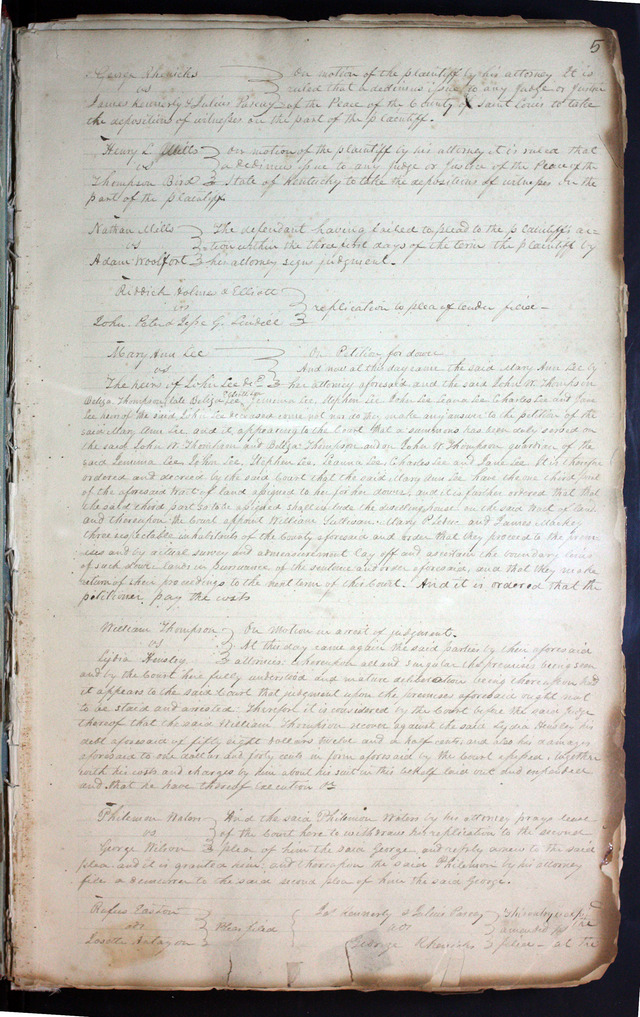 5
George Rhenicks } On motion of the plaintiff by his attorney It is
vs } ruled that a dedimus issue to any Judge or Justice
James Kennerly & Julius Parcay of the Peace of the County of Saint Louis to take
the deposition of witnesses on the part of the plaintiff.
Henry L. Mills } On motion of the plaintiff by his attorney it is ruled that
vs } a dedimus issue to any Judge or Justice of the Peace of the
Thompson Bird } State of Kentucky to take the depositions of witnesses on the
part of the plaintiff
Nathan Mills } The defendant having failed to plead to the plaintiff's ac-
vs } tion within the three first days of the term the plaintiff by
Adam Woolfort } his attorney signs judgment.
Riddick Holmes & Elliott }
vs } replication to plea of tender filed -
John, Peter & Jesse G. Lindell }
Mary Ann Lee } On Petition for dower
vs } And now at this day came the said Mary Ann Lee by
The heirs of John Lee decd } her attorney aforesaid and the said John W. Thompson
Beliza Thompson, late Beliza Lee, Jemima Lee, Stephen Lee John Lee Leana Lee Charles Lee and Jane
Lee heirs of the said John Lee deceased come not nor do they make any answer to the petition of the
said Mary Ann Lee, and it appearing to the Court that a summons has been duly served on
the said John W. Thompson and Beliza Thompson and on John W. Thompson guardian of the
said Jemima Lee, John Lee, Stephen Lee, Leanna Lee, Charles Lee and Jane Lee. It is therefore
ordered and decreed by the said Court that the said Mary Ann Lee have the one third part
of the aforesaid tract of land assigned to her for her dower, and it is further ordered that that
the said third part so to be assigned shall include the dwelling house on the said tract of land
and thereupon the Court appoint William Patterson, Mary and James Mackey
three respectable inhabitants of the County aforesaid and order that they proceed to the premi-
ses and by actual survey and admeasurement lay off and ascertain the boundary lines
of such dower lands in pursuance of the sentence and order aforesaid, and that they make
return of their proceedings to the next term of this Court. And it is ordered that the
petitioner pay the costs
William Thompson } On Motion in arrest of judgment.
vs } At this day came again the said parties by their aforesaid
Lydia Hensley } attornies thereupon all and singular the premises being seen
and by the Court here fully understood and mature deliberation being thereupon had
it appears to the said Court that judgment upon the premises aforesaid ought not
to be staid and arrested. Therefore it is considered by the Court before the said Judge
thereof that the said William Thompson recover against the said Lydia Hensley his
debt aforesaid of fifty eight dollars twelve and a half cents and also his damages
aforesaid to one dollar and forty cents in form aforesaid by the Court assessed, together
with his costs and charges by him about his suit in this behalf laid out and expended
and that he have thereof Execution &c
Philemon Waters } And the said Philemon Waters by his attorney prays leave
vs } of the Court here to withdraw his replication to the second
George Wilson } plea of him the said George and reply anew to the said
plea and it is granted him, and thereupon the said Philemon by his attorney
files a demurrer to the said second plea of him the said George.
Rufus Easton }
vs } Pleas filed
Antayon }
Jas Kennerly & Julius Parcay }
ads
George Rhenicks } filed - at the